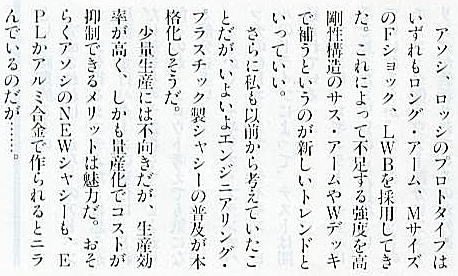 アソシ、ロッシのプロトタイプは
いずれもロング・アーム、Mサイズ
のFショック、LWBを採用してき
た。これによって不足する強度を高
剛性構造のサス・アームやWデッキ
で補うというのが新しいトレンドと
いっていい。
さらに私も以前から考えていたこ
とだが、いよいよエンジニアリング・
プラスチック製シャシーの普及が本
格化しそうだ。
少量生産には不向きだが、生産効
率が高く、しかも量産化でコストが
抑制できるメリットは魅力だ。おそ
らくアソシのNEWシャシーも、E
PLかアルミ合金で作られるとニラ
んでいるのだが……。